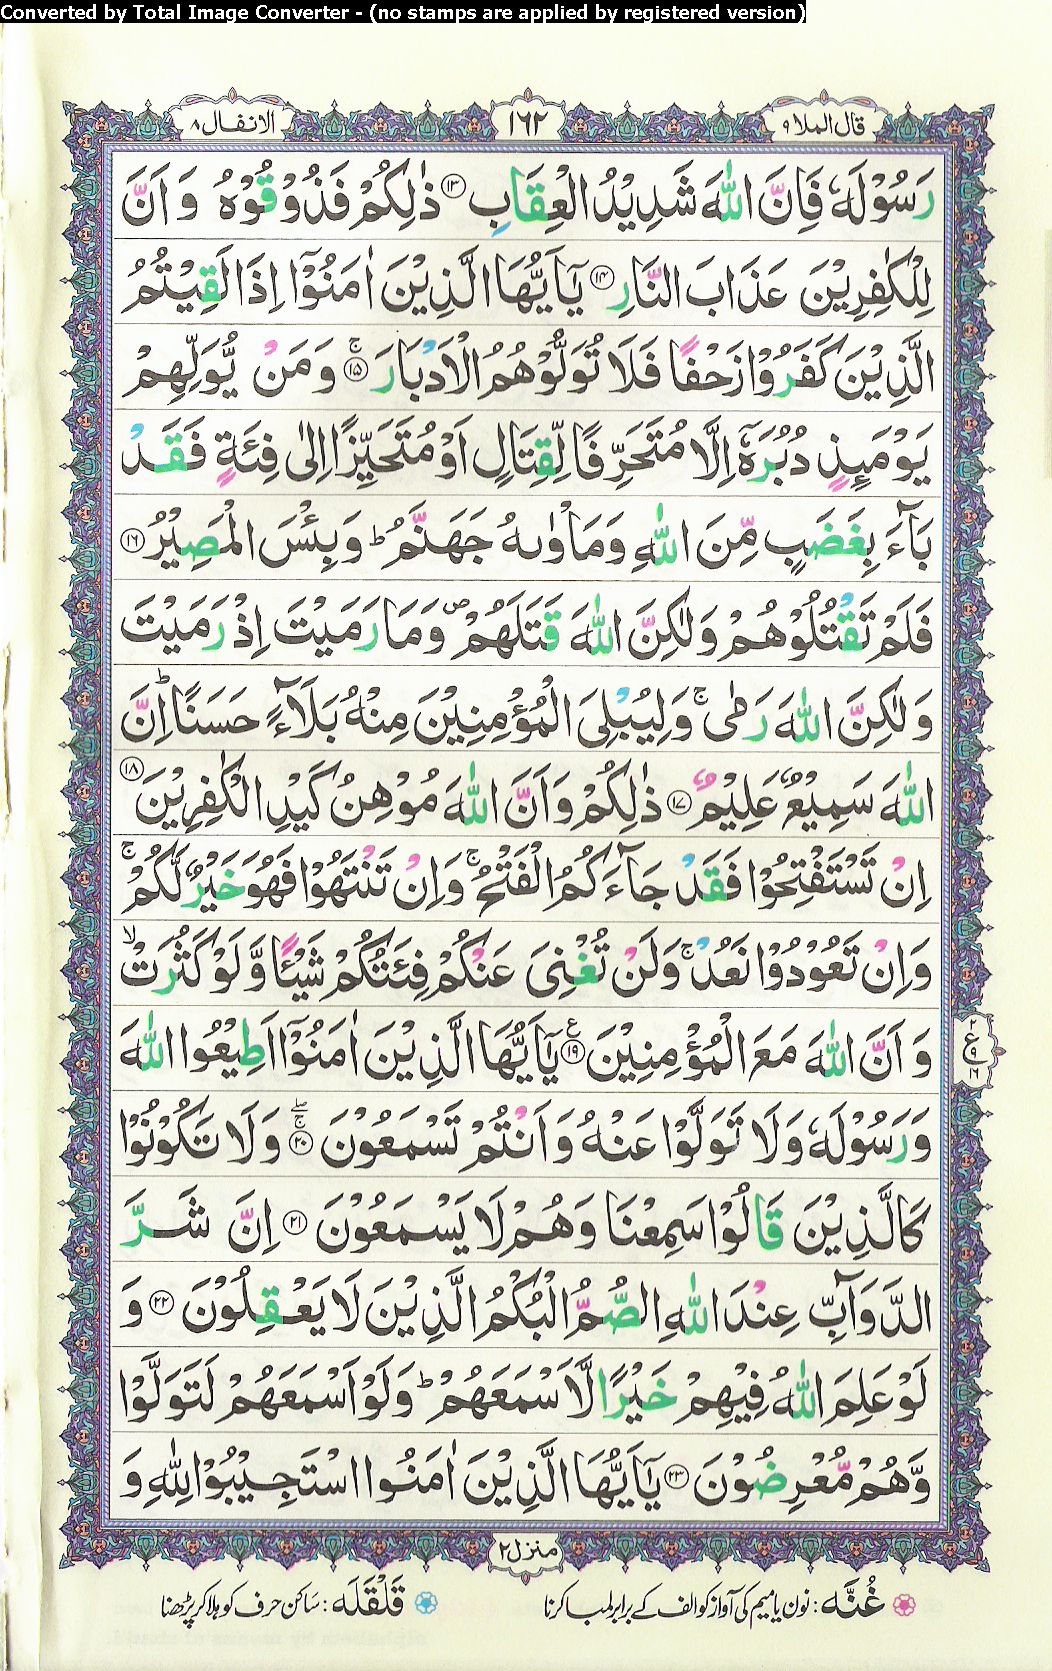 Converted by Total Image Converter - (no stamps are applied by registered version)
قال الملا ۹ ۱۶۲ الانفال ۸
رَسُوۡلَهٗ فَاِنَّ اللّٰهَ شَدِيۡدُ الۡعِقَابِ ۱۳ ذٰلِكُمۡ فَذُوۡقُوۡهُ وَ اَنَّ
لِلۡكٰفِرِيۡنَ عَذَابَ النَّارِ ۱۴ يٰۤاَيُّهَا الَّذِيۡنَ اٰمَنُوۡۤا اِذَا لَقِيۡتُمُ
الَّذِيۡنَ كَفَرُوۡا زَحۡفًا فَلَا تُوَلُّوۡهُمُ الۡاَدۡبَارَ ۚ ۱۵ وَمَنۡ يُّوَلِّهِمۡ
يَوۡمَٮِٕذٍ دُبُرَهٗۤ اِلَّا مُتَحَرِّفًا لِّقِتَالٍ اَوۡ مُتَحَيِّزًا اِلٰى فِئَةٍ فَقَدۡ
بَآءَ بِغَضَبٍ مِّنَ اللّٰهِ وَمَاۡوٰٮهُ جَهَنَّمُ ؕ وَبِئۡسَ الۡمَصِيۡرُ ۱۶
فَلَمۡ تَقۡتُلُوۡهُمۡ وَلٰكِنَّ اللّٰهَ قَتَلَهُمۡ ۪ وَمَا رَمَيۡتَ اِذۡ رَمَيۡتَ
وَلٰكِنَّ اللّٰهَ رَمٰى ۚ وَلِيُبۡلِىَ الۡمُؤۡمِنِيۡنَ مِنۡهُ بَلَآءً حَسَنًا ؕ اِنَّ
اللّٰهَ سَمِيۡعٌ عَلِيۡمٌ ۱۷ ذٰلِكُمۡ وَاَنَّ اللّٰهَ مُوۡهِنُ كَيۡدِ الۡكٰفِرِيۡنَ ۱۸
اِنۡ تَسۡتَفۡتِحُوۡا فَقَدۡ جَآءَكُمُ الۡفَتۡحُ ۚ وَاِنۡ تَنۡتَهُوۡا فَهُوَ خَيۡرٌ لَّكُمۡ ۚ
وَاِنۡ تَعُوۡدُوۡا نَعُدۡ ۚ وَلَنۡ تُغۡنِىَ عَنۡكُمۡ فِئَتُكُمۡ شَيۡـًٔـا وَّلَوۡ كَثُرَتۡ ۙ
وَاَنَّ اللّٰهَ مَعَ الۡمُؤۡمِنِيۡنَ ۱۹ ع يٰۤاَيُّهَا الَّذِيۡنَ اٰمَنُوۡۤا اَطِيۡعُوا اللّٰهَ
۲ ع ۹ ۱۶
وَرَسُوۡلَهٗ وَلَا تَوَلَّوۡا عَنۡهُ وَاَنۡتُمۡ تَسۡمَعُوۡنَ ۚ ۲۰ وَلَا تَكُوۡنُوۡا
كَالَّذِيۡنَ قَالُوۡا سَمِعۡنَا وَهُمۡ لَا يَسۡمَعُوۡنَ ۲۱ اِنَّ شَرَّ
الدَّوَآبِّ عِنۡدَ اللّٰهِ الصُّمُّ الۡبُكۡمُ الَّذِيۡنَ لَا يَعۡقِلُوۡنَ ۲۲ وَ
لَوۡ عَلِمَ اللّٰهُ فِيۡهِمۡ خَيۡرًا لَّاَسۡمَعَهُمۡ ؕ وَلَوۡ اَسۡمَعَهُمۡ لَتَوَلَّوۡا
وَّهُمۡ مُّعۡرِضُوۡنَ ۲۳ يٰۤاَيُّهَا الَّذِيۡنَ اٰمَنُوا اسۡتَجِيۡبُوۡا لِلّٰهِ وَ
منزل ۲
غُنَّه : نون یا میم کی آواز کو الف کے برابر لمبا کرنا قَلْقَلَه : ساکن حرف کو ہلا کر پڑھنا